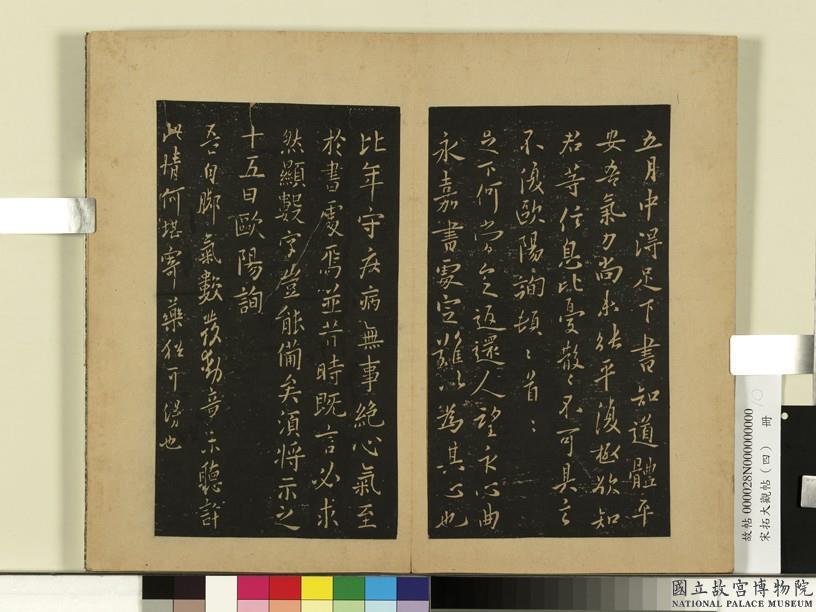 五月中得足下書知道體平
安吾氣力尚未能平復極欲知
君等信息比憂散〻不可具言
不復歐陽詢頓〻首〻
足下何當還人望
永嘉書處定難以為其心也
比年守疾病無事絶心氣至
於書處焉並昔時既言必求
然顯數字豈能備矣須將示之
十五日歐陽詢
吾自腳氣數發動竟未聽許
此情何堪寄藥猶可得也
故帖 000028N000000000
宋拓大觀帖(四) 冊
國立故宮博物院
NATIONAL PALACE MUSEUM